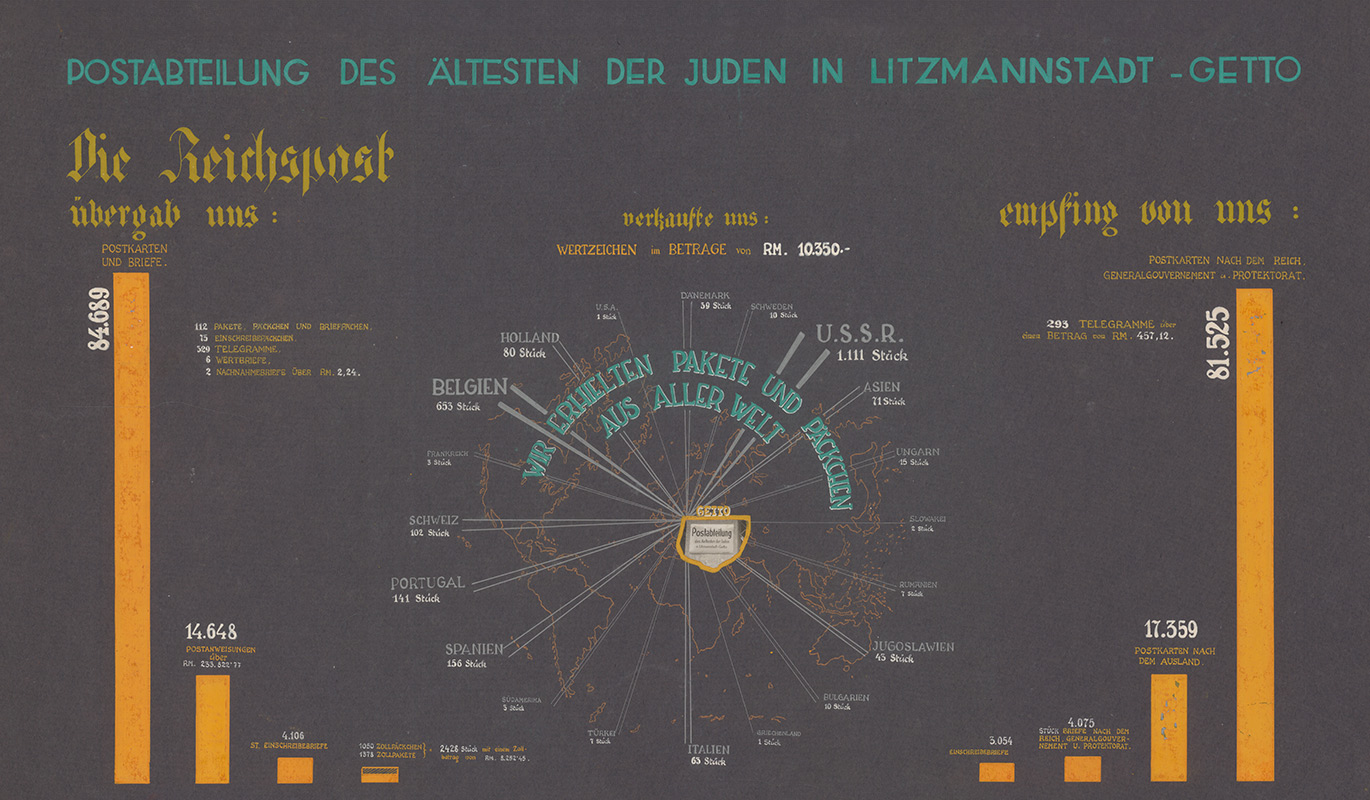 POSTABTEILUNG DES ÄLTESTEN DER JUDEN IN LITZMANNSTADT - GETTO
Die Reichspost
übergab uns :
POSTKARTEN
UND BRIEFE.
84.689
112 PAKETE, PÄCKCHEN UND BRIEFPÄCHEN,
75 EINSCHREIBEPÄCKCHEN,
529 TELEGRAMME,
6 WERTBRIEFE,
2 NACHNAHMEBRIEFE ÜBER RM. 2,24.
14.648
POSTANWEISUNGEN
über
RM. 233.822'77
4.106
ST. EINSCHREIBEBRIEFE
1050 ZOLLPÄCKCHEN
1378 ZOLLPAKETE
2428 Stück mit einem Zoll-
betrag von RM. 8.252'45.
verkaufte uns :
WERTZEICHEN im BETRAGE von RM. 10.350.-
WIR ERHIELTEN PAKETE UND PÄCKCHEN
AUS ALLER WELT
U.S.A.
1 Stück
DÄNEMARK
59 Stück
SCHWEDEN
10 Stück
HOLLAND
80 Stück
U.S.S.R.
1.111 Stück
BELGIEN
653 Stück
ASIEN
71 Stück
FRANKREICH
3 Stück
UNGARN
15 Stück
SCHWEIZ
102 Stück
GETTO
Postabteilung
SLOWAKEI
2 Stück
PORTUGAL
141 Stück
RUMÄNIEN
7 Stück
SPANIEN
156 Stück
JUGOSLAWIEN
45 Stück
SÜDAMERIKA
5 Stück
BULGARIEN
10 Stück
TÜRKEI
Stück
GRIECHENLAND
1 Stück
ITALIEN
63 Stück
empfing von uns :
POSTKARTEN NACH DEM REICH,
GENERALGOUVERNEMENT u. PROTEKTORAT.
293 TELEGRAMME über
einen BETRAG von RM. 457,12.
81.525
17.359
POSTKARTEN NACH
DEM AUSLAND.
4.075
STÜCK BRIEFE NACH DEM
REICH, GENERALGOUVER-
NEMENT U. PROTEKTORAT.
3.054
EINSCHREIBBRIEFE